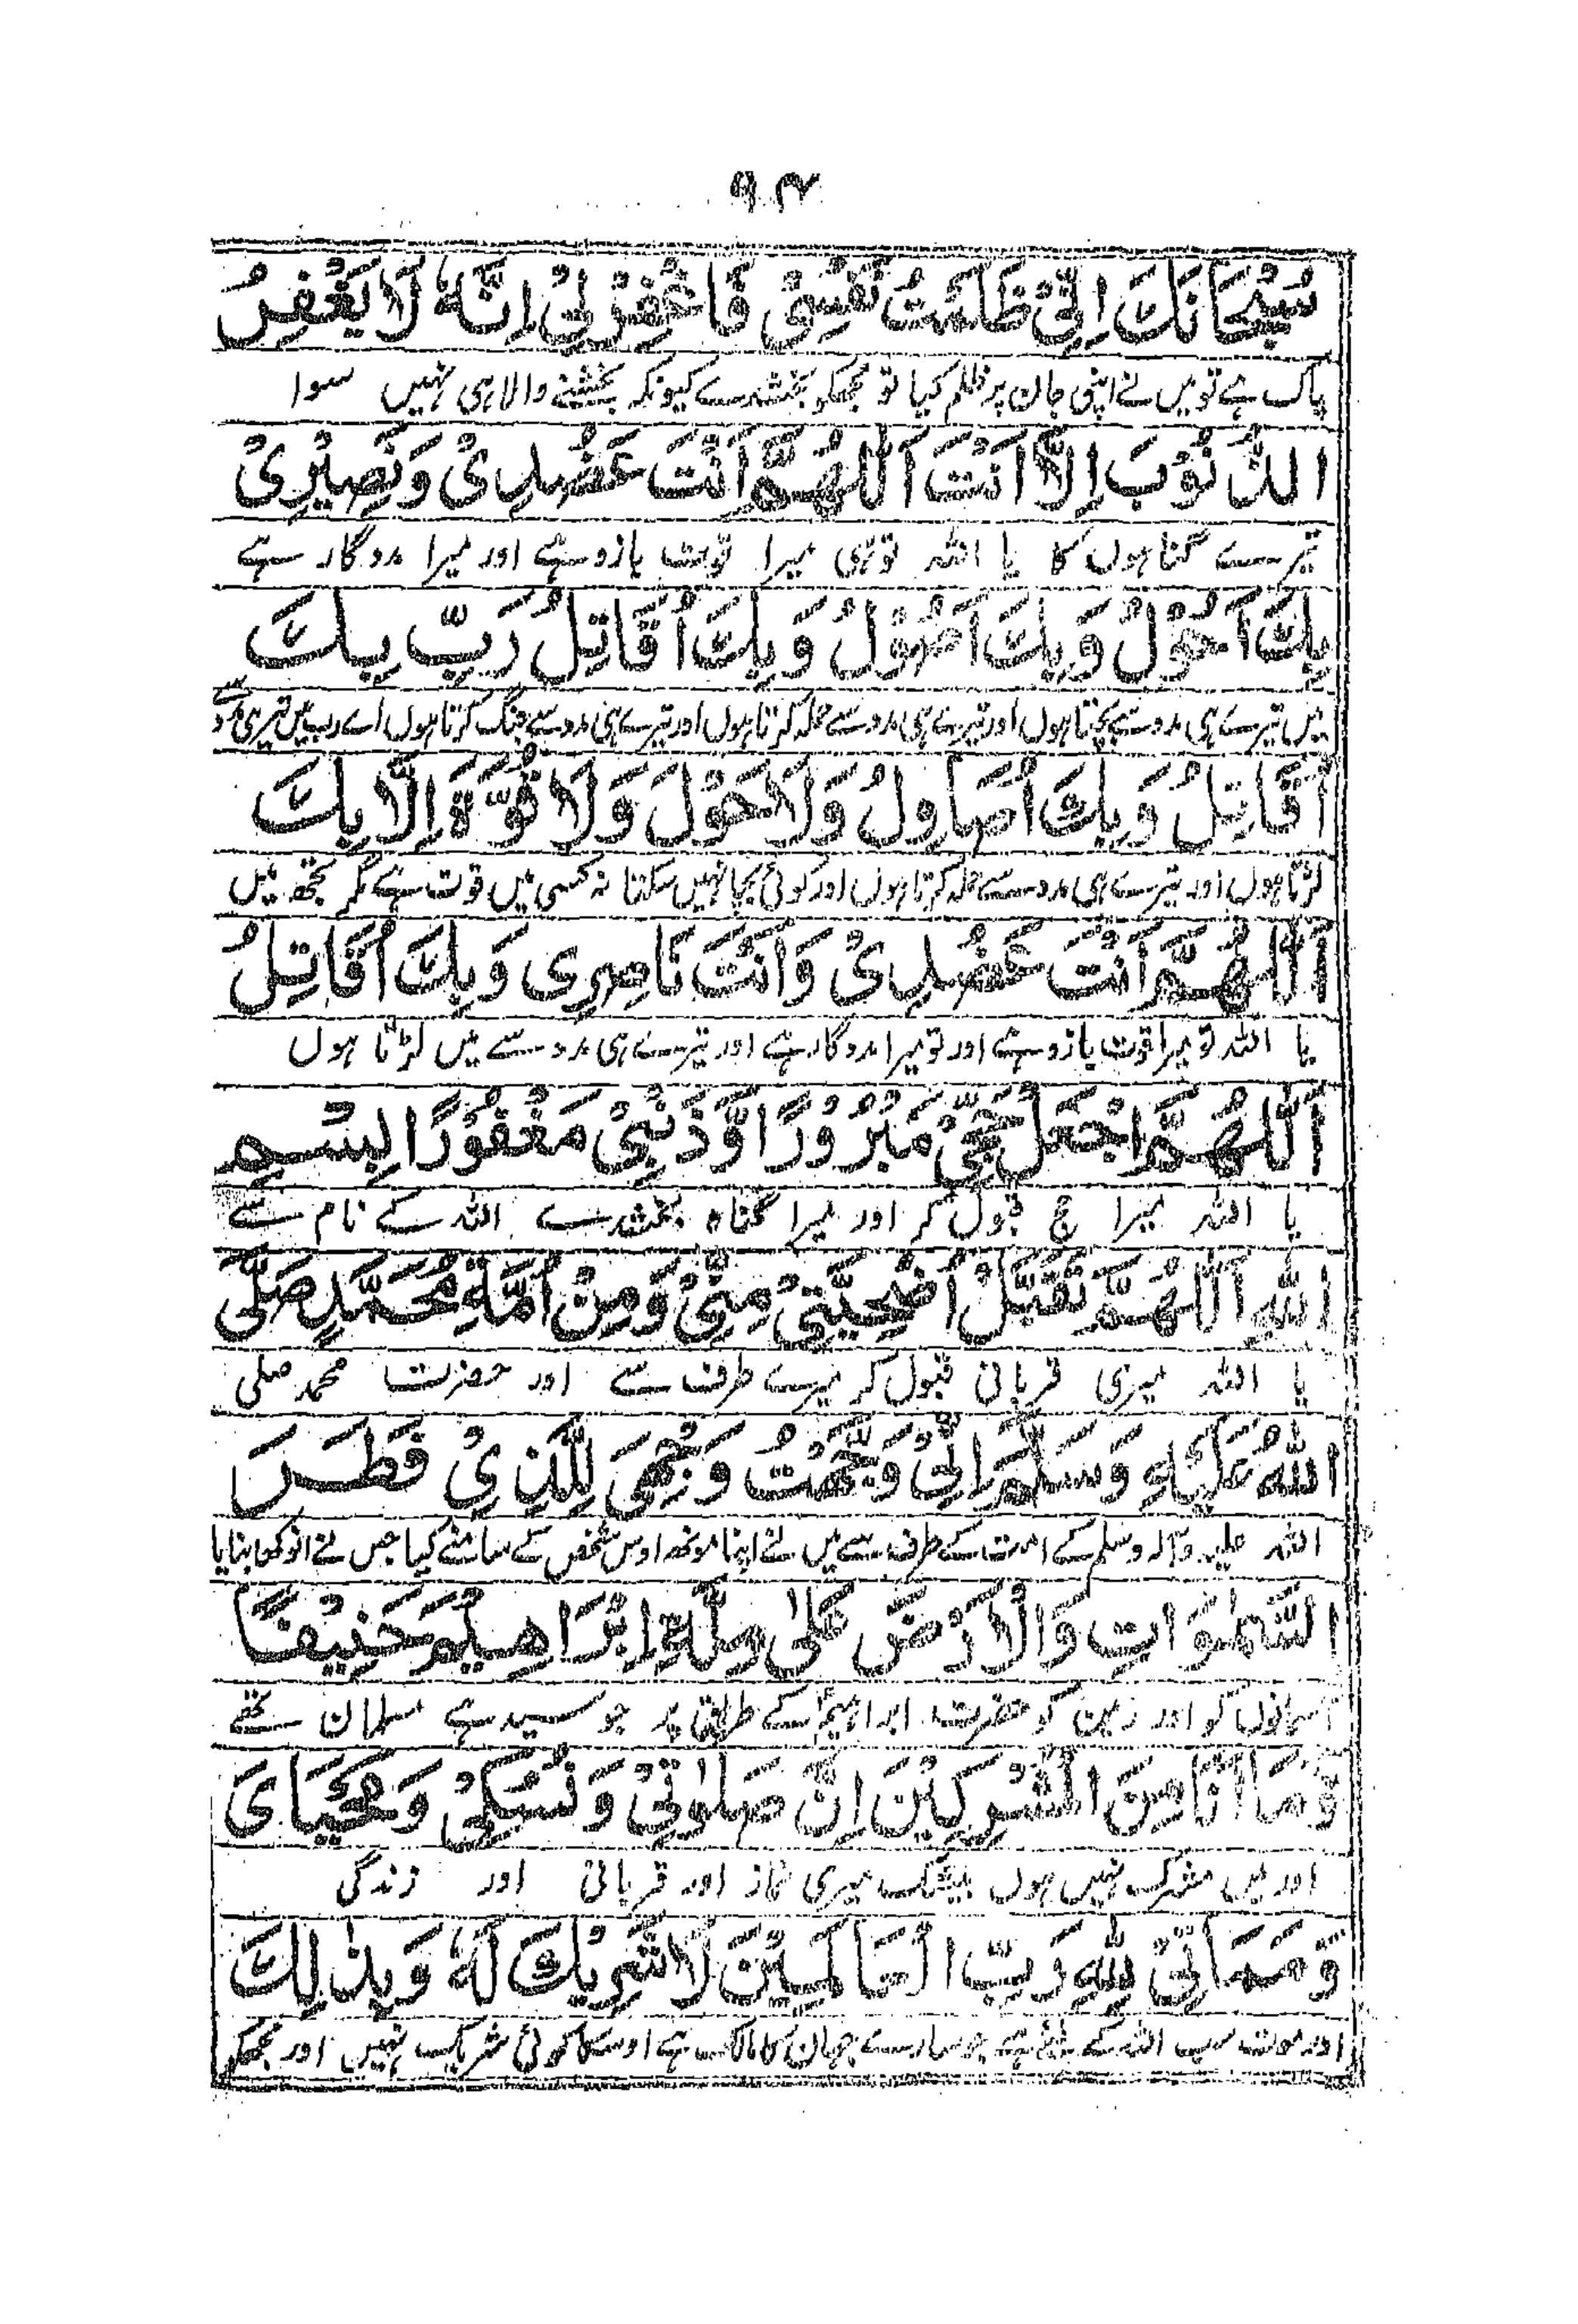 ۹۴
سُبْحَانَكَ اِنِّیْ ظَلَمْتُ نَفْسِیْ فَاغْفِرْ لِیْ اِنَّهٗ لَا یَغْفِرُ
پاک ہے تو میں نے اپنی جان پر ظلم کیا تو مجھکو بخشدے کیونکہ بخشنے والا ہی نہیں سوا
الذُّنُوْبَ اِلَّا اَنْتَ اَللّٰهُمَّ اَنْتَ عَضُدِیْ وَنَصِیْرِیْ
تیرے گناہوں کا یا اللہ توہی میرا قوت بازو ہے اور میرا مددگار ہے
بِكَ اَحُوْلُ وَبِكَ اَصُوْلُ وَبِكَ اُقَاتِلُ رَبِّ بِكَ
میں تیرے ہی مدد سے بچتا ہوں اور تیرے ہی مدد سے حملہ کرتا ہوں اور تیرے ہی مدد سے جنگ کرتا ہوں اے رب میں تیری مدد سے
اُقَاتِلُ وَبِكَ اُصَاوِلُ وَلَا حَوْلَ وَلَا قُوَّةَ اِلَّا بِكَ
لڑتا ہوں اور تیرے ہی مدد سے حملہ کرتا ہوں اور کوئی بچا نہیں سکتا نہ کسی میں قوت ہے مگر تجھ میں
اَللّٰهُمَّ اَنْتَ عَضُدِیْ وَاَنْتَ نَاصِرِی وَبِكَ اُقَاتِلُ
یا اللہ تو میرا قوت بازو ہے اور تو میرا مددگار ہے اور تیرے ہی مدد سے میں لڑتا ہوں
اَللّٰهُمَّ اجْعَلْ حَجِّیْ مَبْرُوْرًا وَّ ذَنْبِیْ مَغْفُوْرًا بِسْمِ
یا اللہ میرا حج قبول کر اور میرا گناہ بخشدے اللہ کے نام سے
اللّٰهِ اَللّٰهُمَّ تَقَبَّلْ اُضْحِیَّتِیْ مِنِّیْ وَمِنْ اُمَّةِ مُحَمَّدٍ صَلَّی
یا اللہ میری قربانی قبول کر میرے طرف سے اور حضرت محمد صلی
اللّٰهُ عَلَیْهِ وَسَلَّمَ اِنِّیْ وَجَّهْتُ وَجْهِیَ لِلَّذِیْ فَطَرَ
اللہ علیہ وآلہ وسلم کے امت کے طرف سے میں نے اپنا مونھ اوس شخص کے سامنے کیا جس نے انوکھا بنایا
السَّمٰوَاتِ وَالْاَرْضَ عَلٰی مِلَّةِ اِبْرَاهِیْمَ حَنِیْفًا
آسمانوں کو اور زمین کو حضرت ابراہیمؑ کے طریق پر جو سیدہے مسلمان تھے
وَمَا اَنَا مِنَ الْمُشْرِكِیْنَ اِنَّ صَلٰوتِیْ وَنُسُكِیْ وَمَحْیَایَ
اور میں مشرک نہیں ہوں بیشک میری نماز اور قربانی اور زندگی
وَمَمَاتِیْ لِلّٰهِ رَبِّ الْعَالَمِیْنَ لَا شَرِیْكَ لَهٗ وَبِذٰلِكَ
اور موت سب اللہ کے لئے ہے جو سارے جہان کا مالک ہے اوسکا کوئی شریک نہیں اور مجھکو